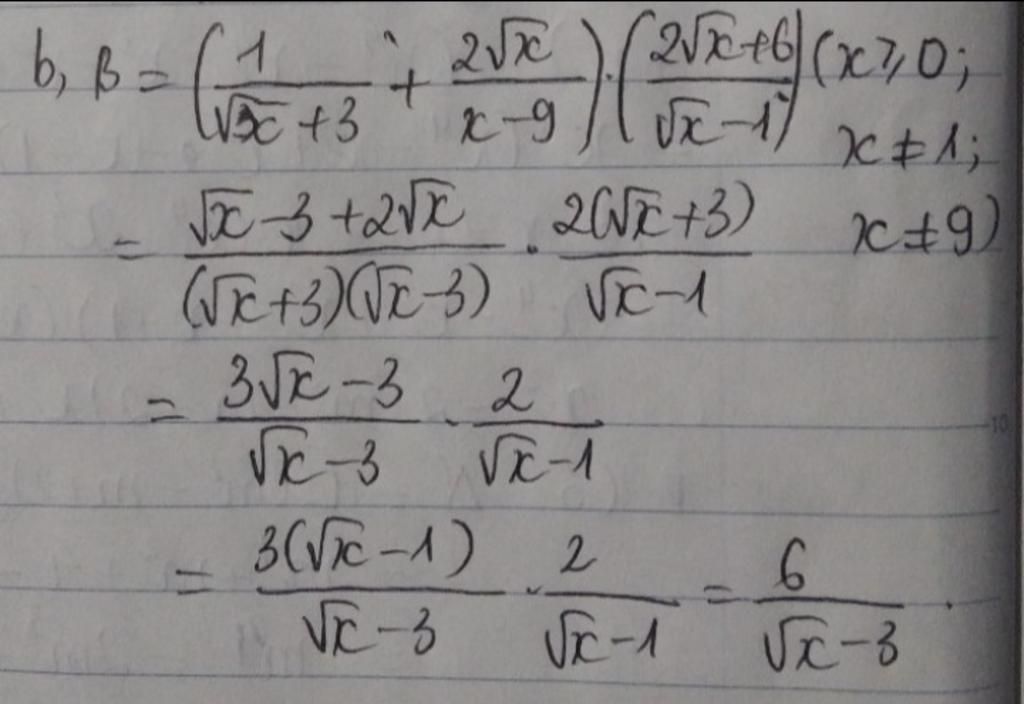 b, B = (1/(√x + 3) + 2√x/(x - 9)) · ((2√x + 6)/(√x - 1)) (x ≥ 0; x ≠ 1; x ≠ 9)
= (√x - 3 + 2√x)/((√x + 3)(√x - 3)) · 2(√x + 3)/(√x - 1)
= (3√x - 3)/(√x - 3) · 2/(√x - 1)
= 3(√x - 1)/(√x - 3) · 2/(√x - 1) = 6/(√x - 3) .